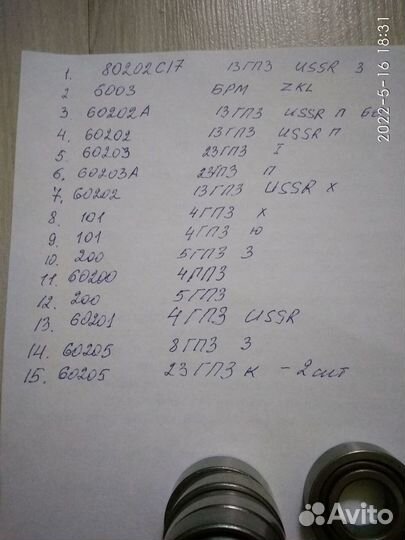 1. 80202С17 13ГПЗ USSR З
2 6003 БРМ ZKL
3 60202А 13ГПЗ USSR П
4. 60202 13ГПЗ USSR П
5. 60203 23ГПЗ I
6. 60203А 23ГПЗ П
7. 60202 13ГПЗ USSR Х
8. 101 4ГПЗ Х
9. 101 4ГПЗ Ю
10. 200 5ГПЗ З
11. 60200 4ГПЗ
12. 200 5ГПЗ
13. 60201 4ГПЗ USSR
14. 60205 8ГПЗ З
15. 60205 23ГПЗ К - 2шт
2022-5-16 18:31
Avito